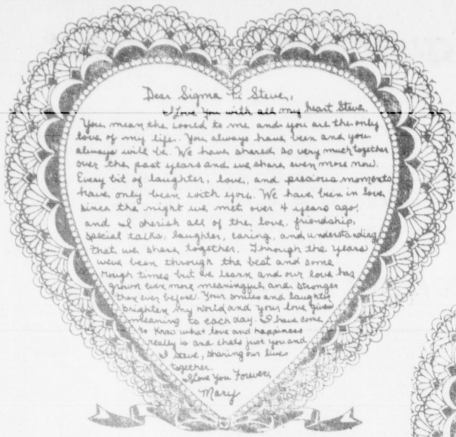 Dear Sigma Pi Steve,
I Love You with all my heart Steve.
You mean the world to me and you are the only
love of my life. You always have been and you
always will be. We have shared so very much together
over the past years and we share even more now.
Every bit of laughter, love, and precious moments
have only been with you. We have been in love
since the night we met over 4 years ago,
and I cherish all of the love, friendship,
special talks, laughter, caring, and understanding
that we share together. Through the years
weve been through the best and some
rough times but we learn and our love has
grown even more meaningful and stronger
than ever before. Your smiles and laughter
brighten my world and your love gives
meaning to each day. I have come
to know what love and happiness
really is and thats just you and
I Steve, sharing our lives
together.
I Love You Forever,
Mary